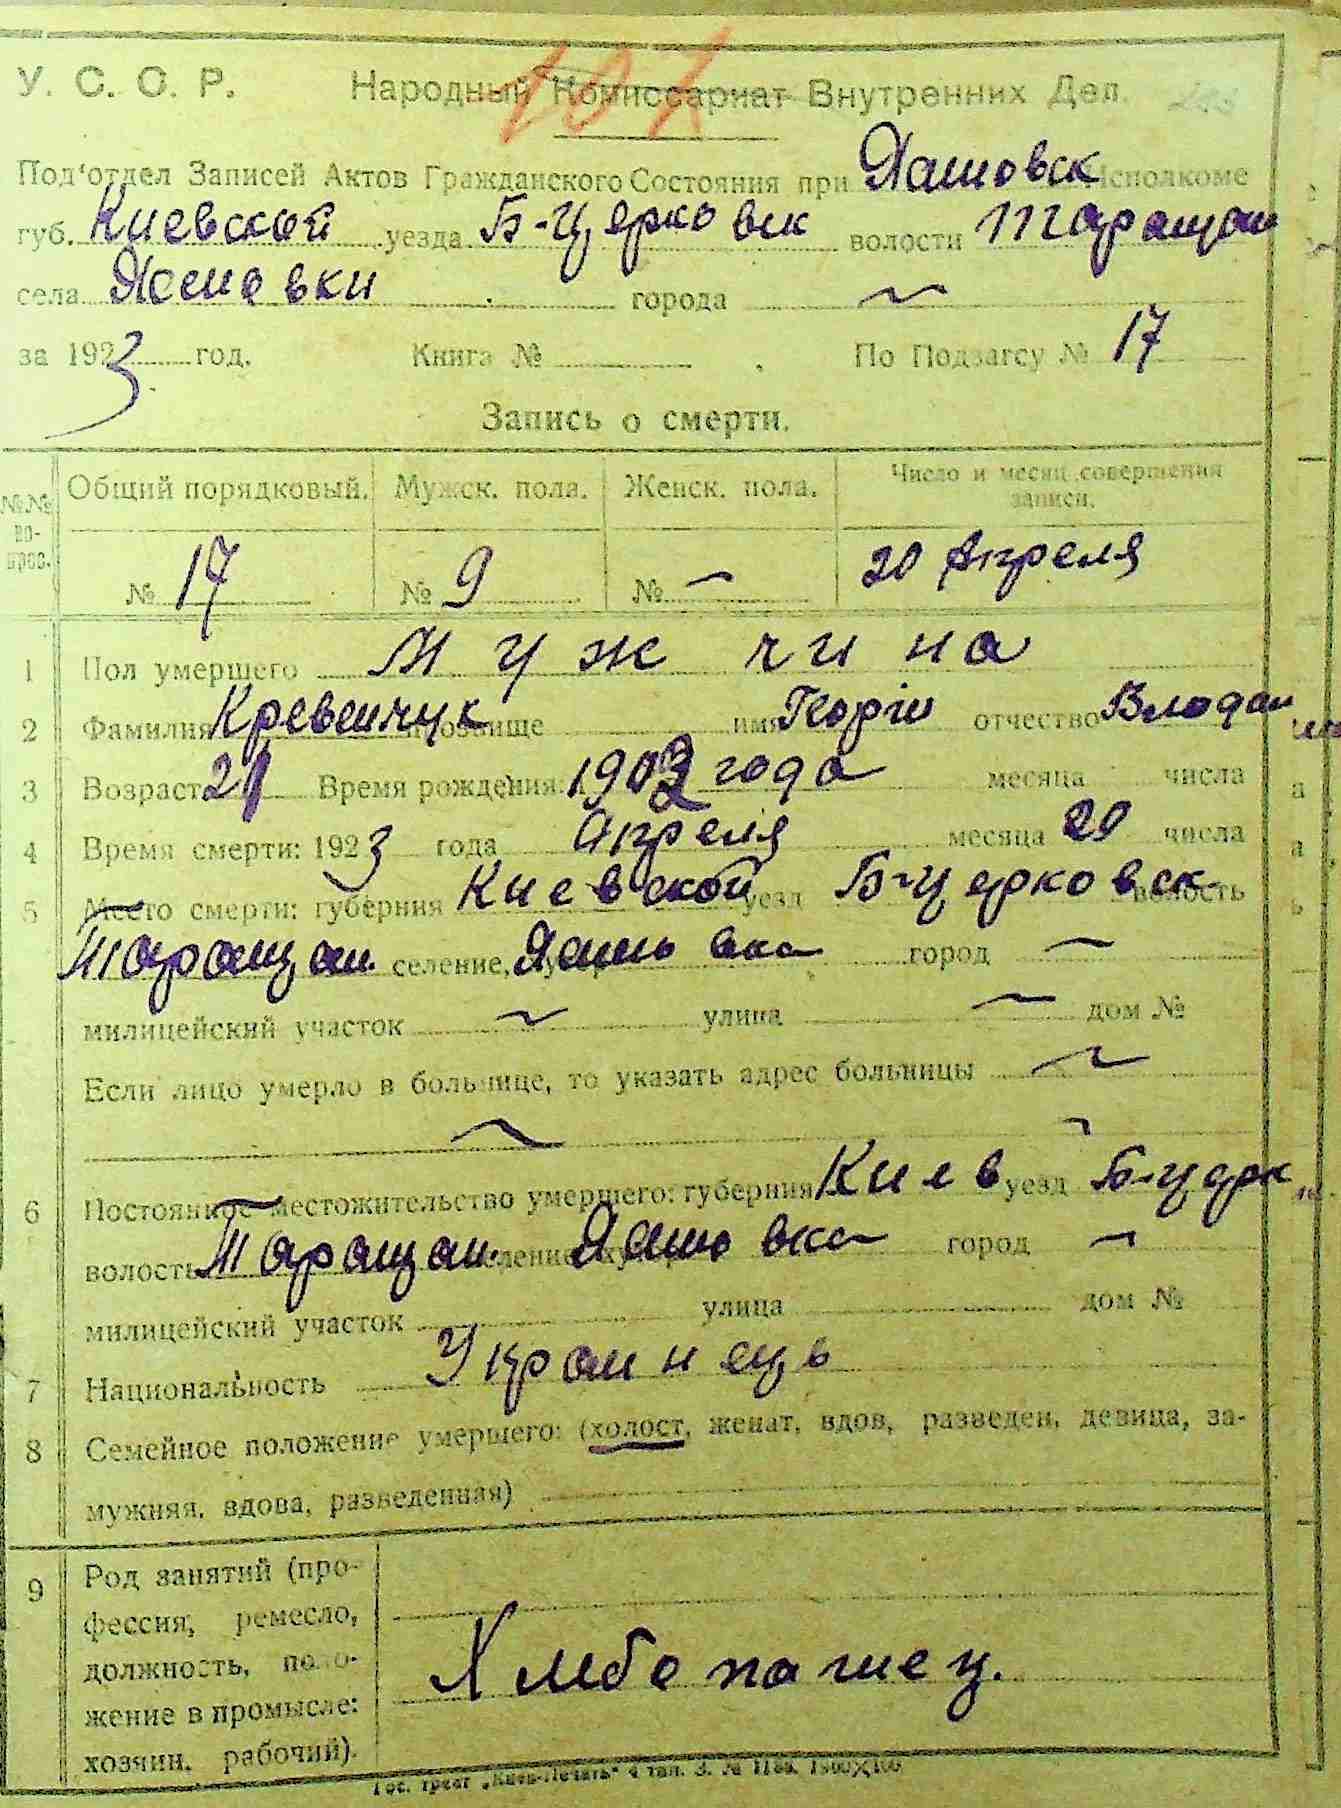 У. С. С. Р. Народный Комиссариат Внутренних Дел.
101
Под'отдел Записей Актов Гражданского Состояния при Яшновск Исполкоме
губ. Киевской уезда Б-Церковск волости Таращан
села Яшновки города ~
за 1923 год. Книга № По Подзагсу № 17
Запись о смерти.
№№ вопрос. Общий порядковый. Мужск. пола. Женск. пола. Число и месяц совершения записи.
№ 17 № 9 № — 20 Апреля
1 Пол умершего Мужчина
2 Фамилия Кревенчук прозвище имя Георгiй отчество Владим
3 Возраст 21 Время рождения: 1902 года месяца числа
4 Время смерти: 1923 года Апреля месяца 20 числа
5 Место смерти: губерния Киевской уезд Б-Церковск волость
Таращан. селение, Яшновка город ~
милицейский участок ~ улица ~ дом №
Если лицо умерло в больнице, то указать адрес больницы ~
6 Постоянное местожительство умершего: губерния Киев уезд Б-Церк
волость Таращан. селение Яшновка город ~
милицейский участок улица дом №
7 Национальность Украинець
8 Семейное положение умершего: (холост, женат, вдов, разведен, девица, за-
мужняя, вдова, разведенная)
9 Род занятий (про-
фессия, ремесло,
должность, поло-
жение в промысле:
хозяин, рабочий).
Хлебопашец.
Гос. трест „Киев-Печать“ 4 тип. З. №